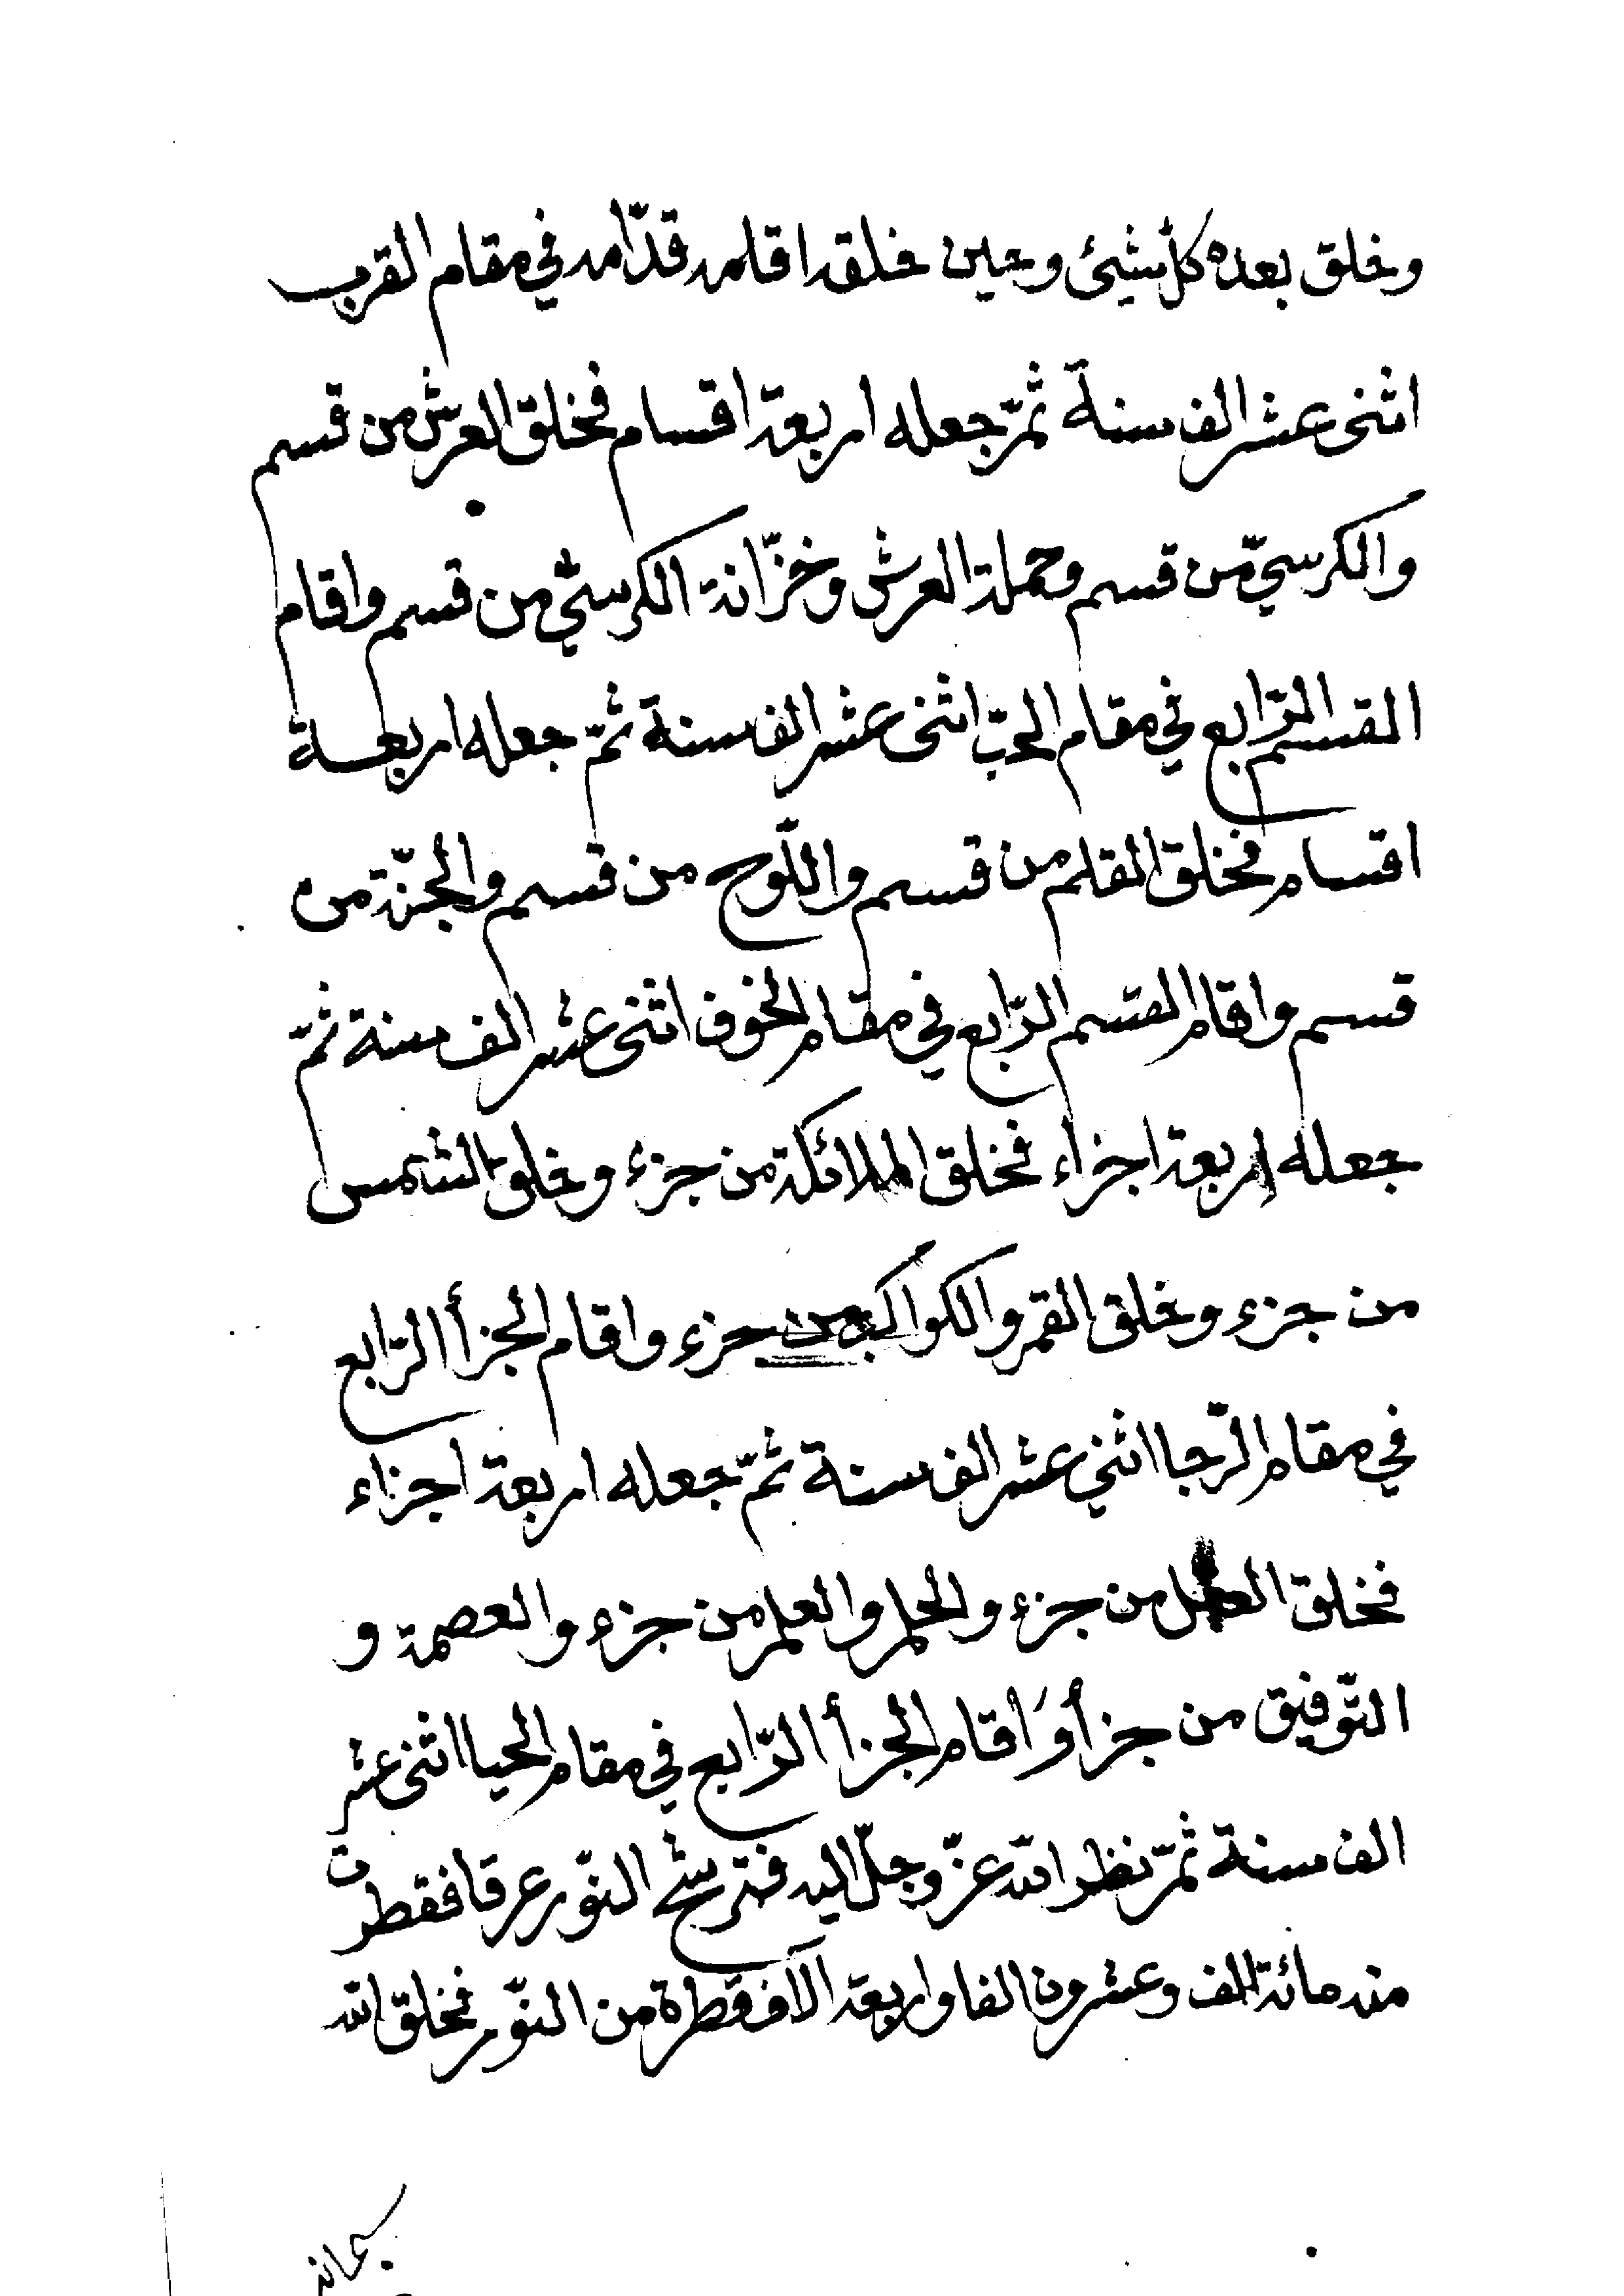 وخلق بعده كلّ شيئ وحين خلقه اقامه قدّامه في مقام القرب
اثنى عشر الف سنة ثمّ جعله اربعة اقسام فخلق العرش من قسم
والكرسيّ من قسم وحملة العرش وخزّانة الكرسيّ من قسم واقام
القسم الرّابع في مقام الحبّ اثنى عشر الف سنة ثمّ جعله اربعة
اقسام فخلق القلم من قسم واللّوح من قسم والجنّة من
قسم واقام القسم الرّابع في مقام الخوف اثنى عشر الف سنة ثمّ
جعله اربعة اجزاء فخلق الملائكة من جزء وخلق الشمس
من جزء وخلق القمر والكواكب من جزء واقام الجزأ الرّابع
في مقام الرّجا اثني عشر الف سنة ثمّ جعله اربعة اجزاء
فخلق العقل من جزء والحلم والعلم من جزء والعصمة و
التّوفيق من جزأ وَاقام الجزأ الرّابع في مقام الحيا اثنى عشر
الف سنة ثمّ نظر اللّه عزّ وجلّ اليه فترشّح النّور عرقا فقطرت
منه مائة الف وعشرون الفا واربعة آلاف قطرة من النّور فخلق اللّه
سبحانه